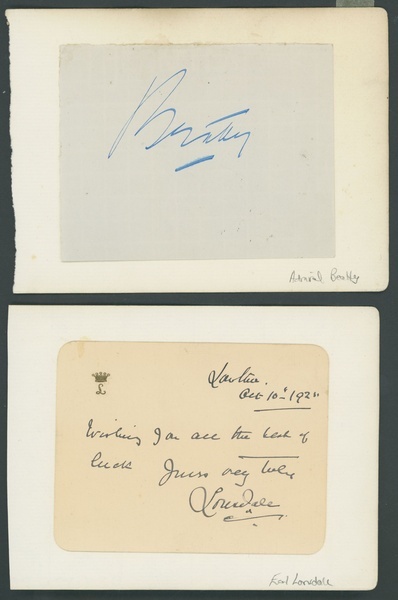 Beatty
Admiral Beatty
L
Lowther.
Oct 10th 192
Wishing You all the best of
luck Yours very truly
Lonsdale
Earl Lonsdale